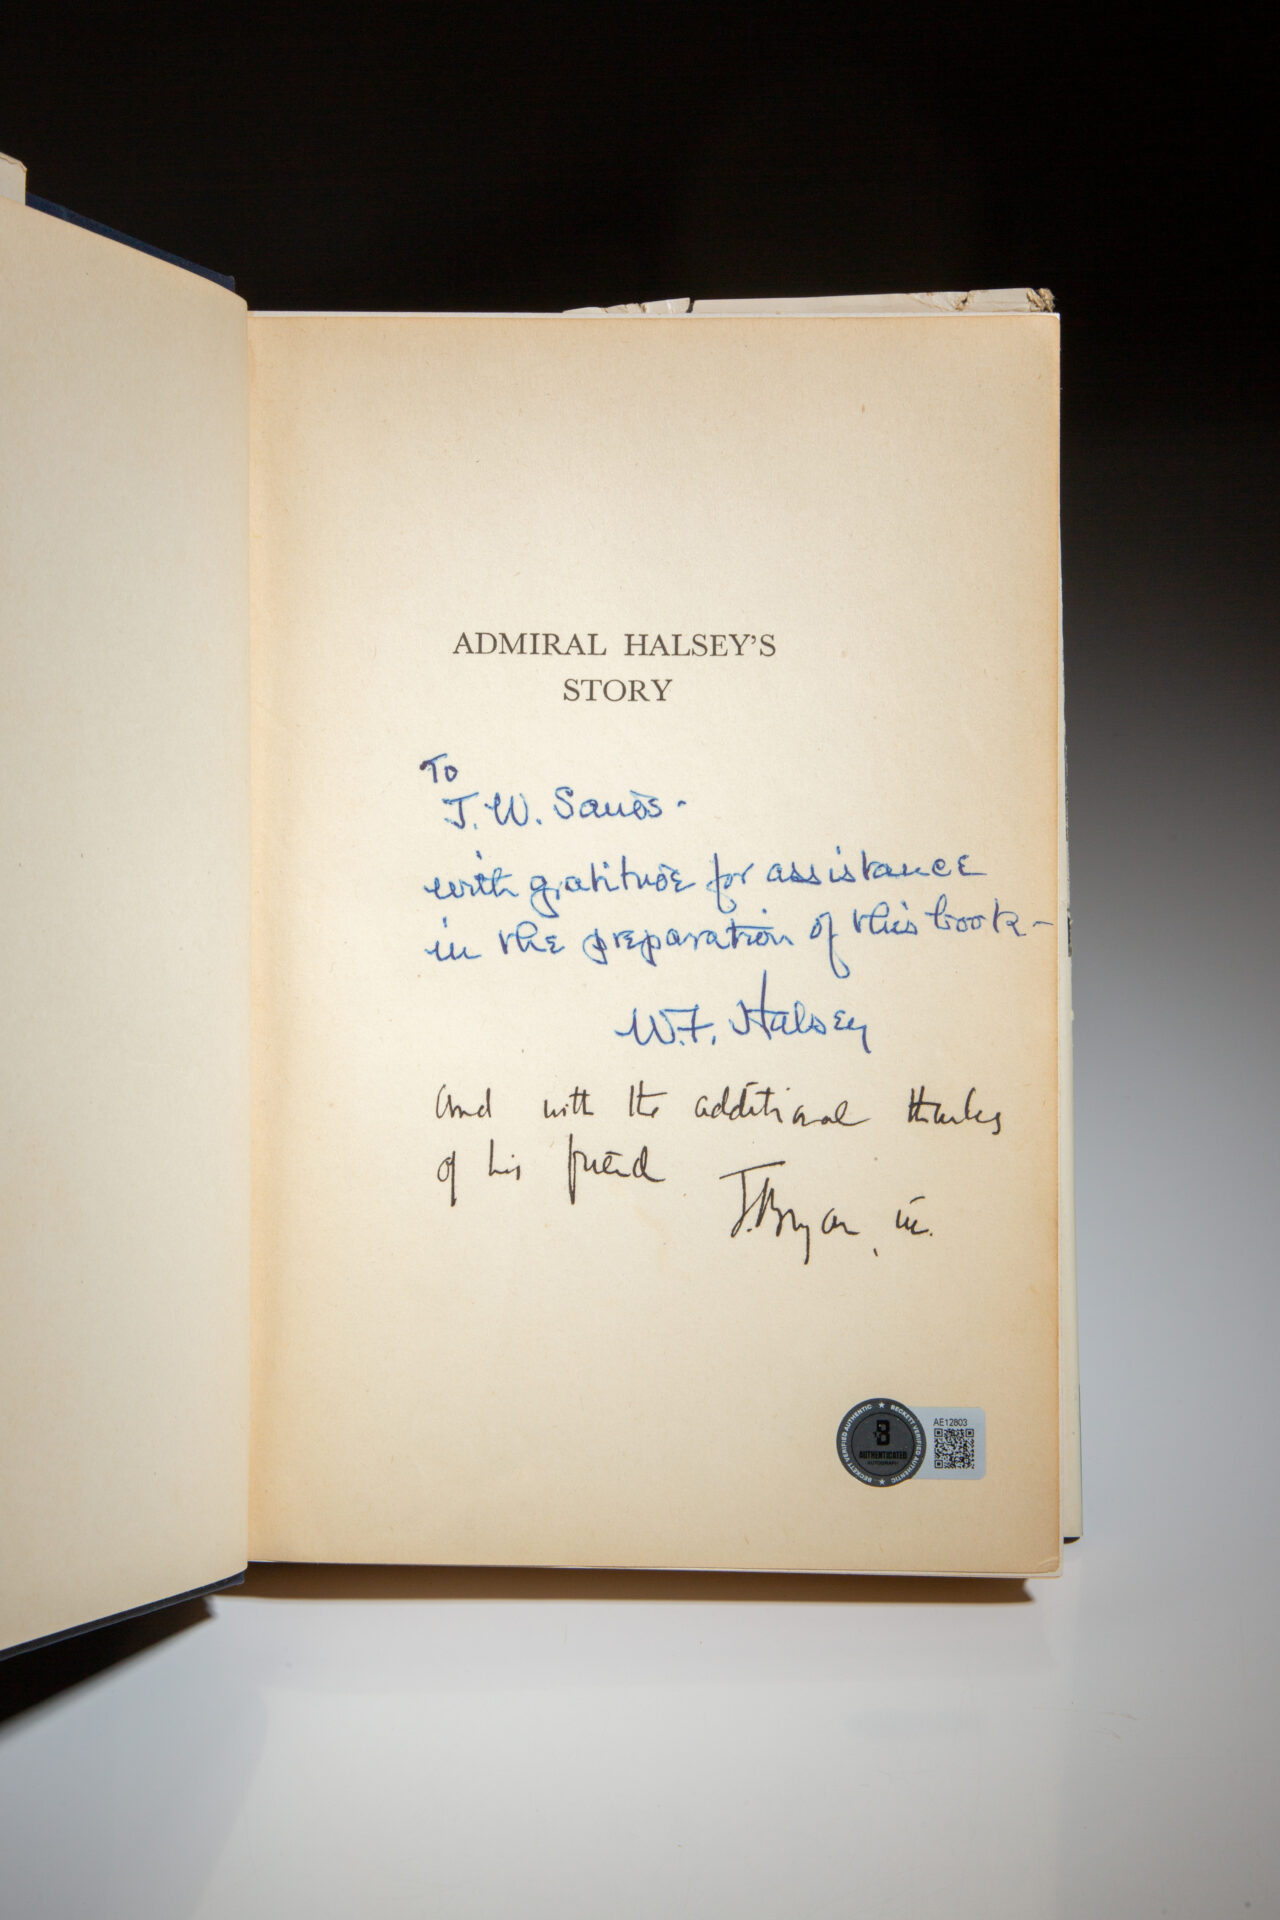 ADMIRAL HALSEY'S
STORY
To
J. W. Sands -
with gratitude for assistance
in the preparation of this book -
W.F. Halsey
And with the additional thanks
of his friend
J. Bryan, iii.
BECKETT VERIFIED AUTHENTIC ★ BECKETT VERIFIED AUTHENTIC ★
B
AUTHENTICATED
AUTOGRAPH
AE12803